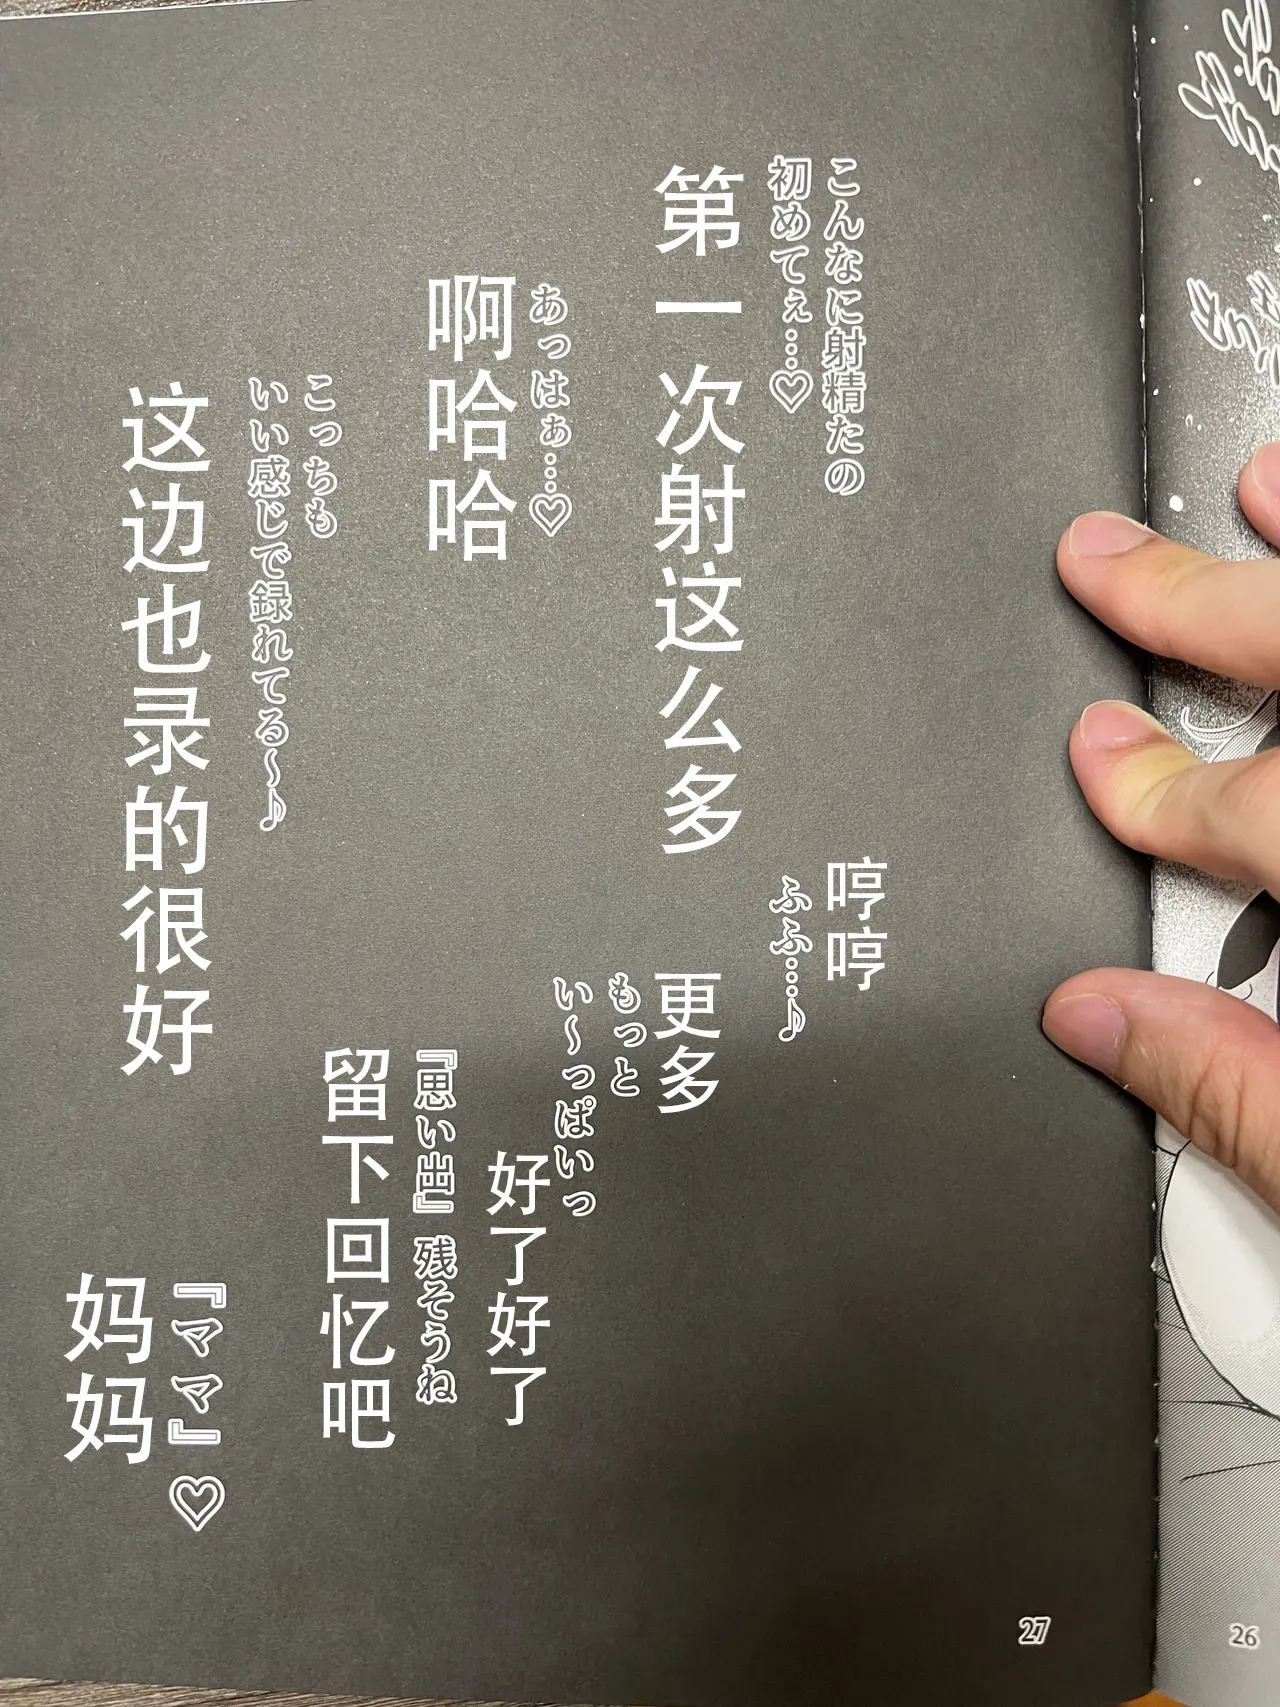 こんなに射精たの
初めてぇ…♡
第一次射这么多
あっはぁ…♡
啊哈哈
こっちも
いい感じで録れてる～♪
这边也录的很好
哼哼
ふふ…♪
更多
もっと
い～っぱいっ
好了好了
『思い出』残そうね
留下回忆吧
『ママ』♡
妈妈
27
26